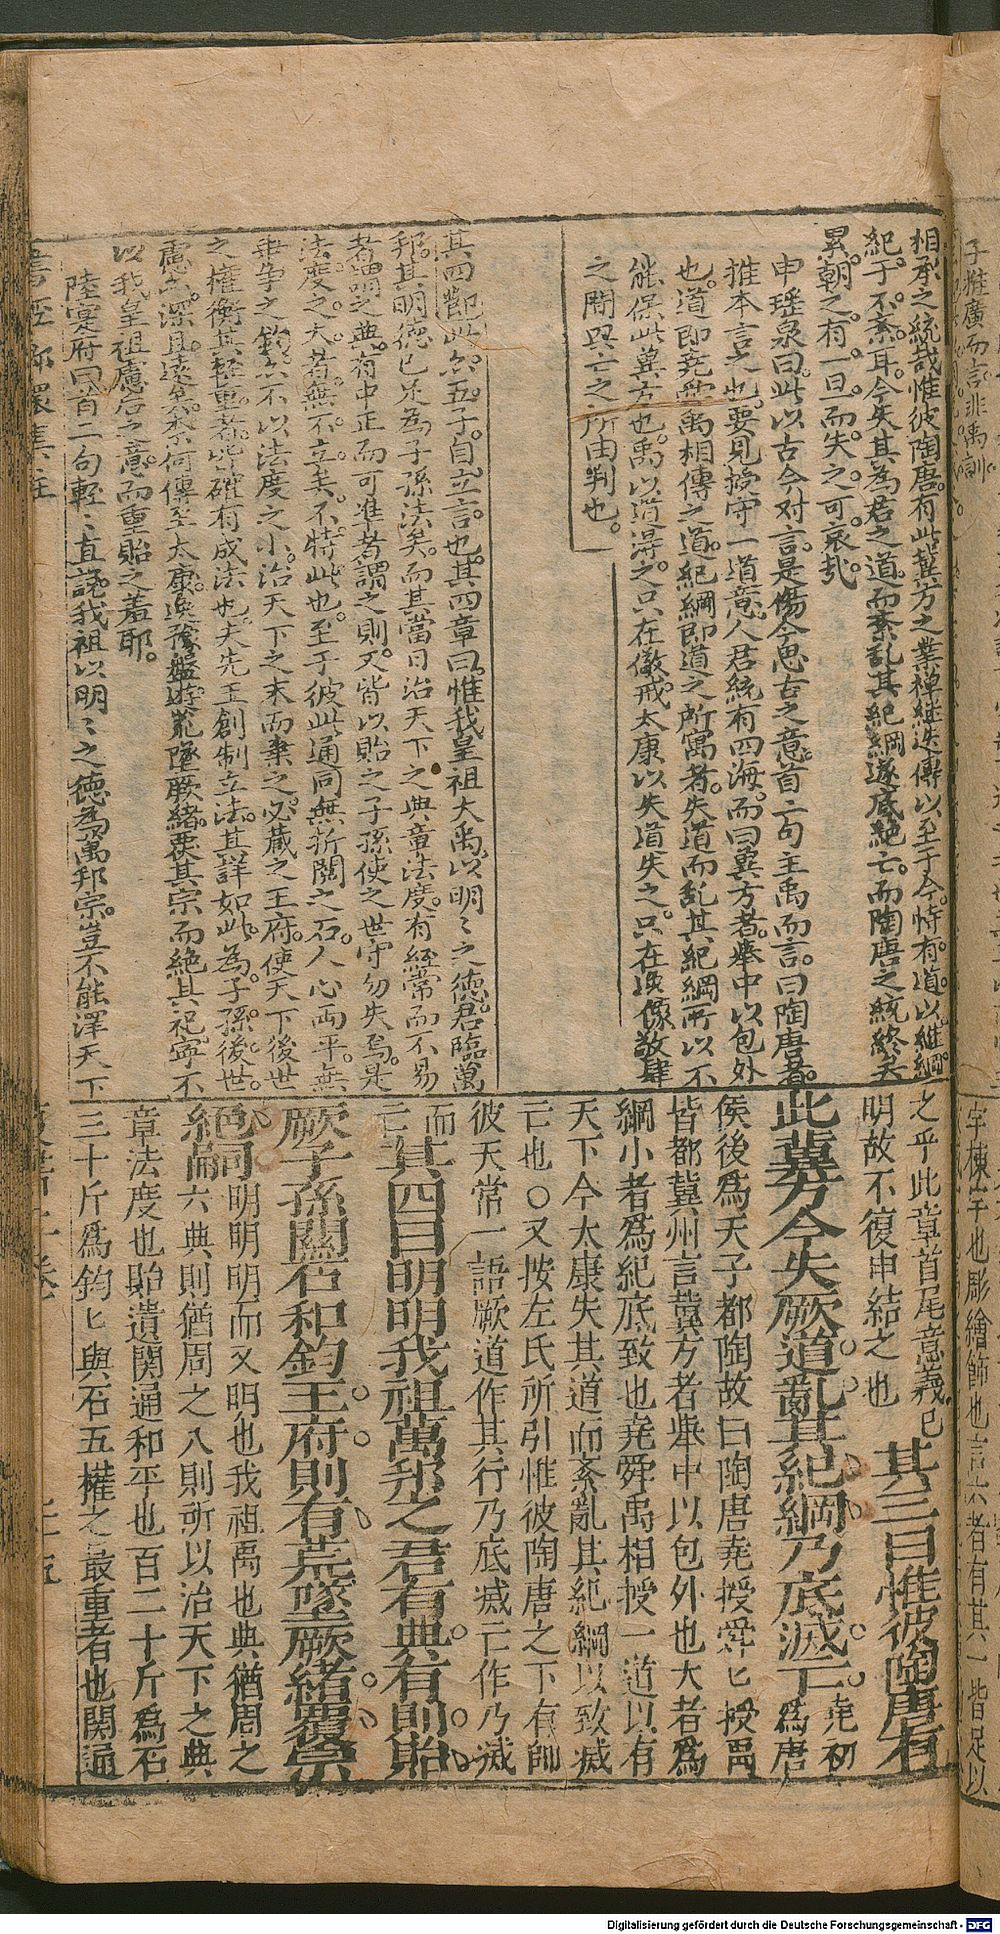 相承之統哉惟彼陶唐有此冀方之業禪継迭傳以至于今恃有道以維綱
紀于不紊耳今失其為君之道而紊乱其紀綱遂底絶亡而陶唐之統終矣
累朝之有一旦而失之可哀哉
申瑶泉曰此以古今对言是傷今思古之意首二句主禹而言曰陶唐者
推本言之也要見授守一道意人君統有四海而曰冀方者舉中以包外
也道即堯舜禹相傳之道紀綱即道之所寓者失道而乱其紀綱所以不
能保此冀方也禹以道得之只在儆戒太康以失道失之只在逸豫敬肆
之間興亡之所由判也
其四節此亦五子自立言也其四章曰惟我皇祖大禹以明〻之德君臨萬
邦其明德已足為子孫法矣而其當日治天下之典章法度有經常而不易
者謂之典有中正而可準者謂之則又皆以貽之子孫使之世守勿失焉是
法度之大者無不立矣不特此也至于彼此通同無折閱之石人心両平無
乖争之鈞亦不以法度之小治天下之末而棄之必蔵之王府使天下後世
之權衡其輕重者皆確有成法也夫先王創制立法其詳如此為子孫後世
慮亦深且遠矣奈何傳至太康逸豫盤遊荒墜厥緒覆其宗而絶其祀寧不
以我皇祖慮后之意而重貽之羞耶
陸寔府曰首二句輕〻直說我祖以明〻之德為萬邦宗豈不能澤天下
之乎此章首尾意義已
明故不復申結之也
其三曰惟彼陶唐有
此冀方今失厥道亂其紀綱乃底滅亡
堯初為唐
侯後為天子都陶故曰陶唐堯授舜匕授禹
皆都冀州言冀方者舉中以包外也大者為
綱小者為紀底致也堯舜禹相授一道以有
天下今太康失其道而紊亂其紀綱以致滅
亡也○又按左氏所引惟彼陶唐之下有帥
彼天常一語厥道作其行乃底滅亡作乃滅
而亡
其四曰明明我祖萬邦之君有典有則貽
厥子孫關石和鈞王府則有荒墜厥緒覆宗
絶嗣
明明明而又明也我祖禹也典猶周之
六典則猶周之八則所以治天下之典
章法度也貽遺関通和平也百二十斤為石
三十斤為鈞匕與石五權之最重者也関通
子推廣而言非禹訓
宇棟宇也彫繪飾也言六者有其一皆足以
Digitalisierung gefördert durch die Deutsche Forschungsgemeinschaft - DFG